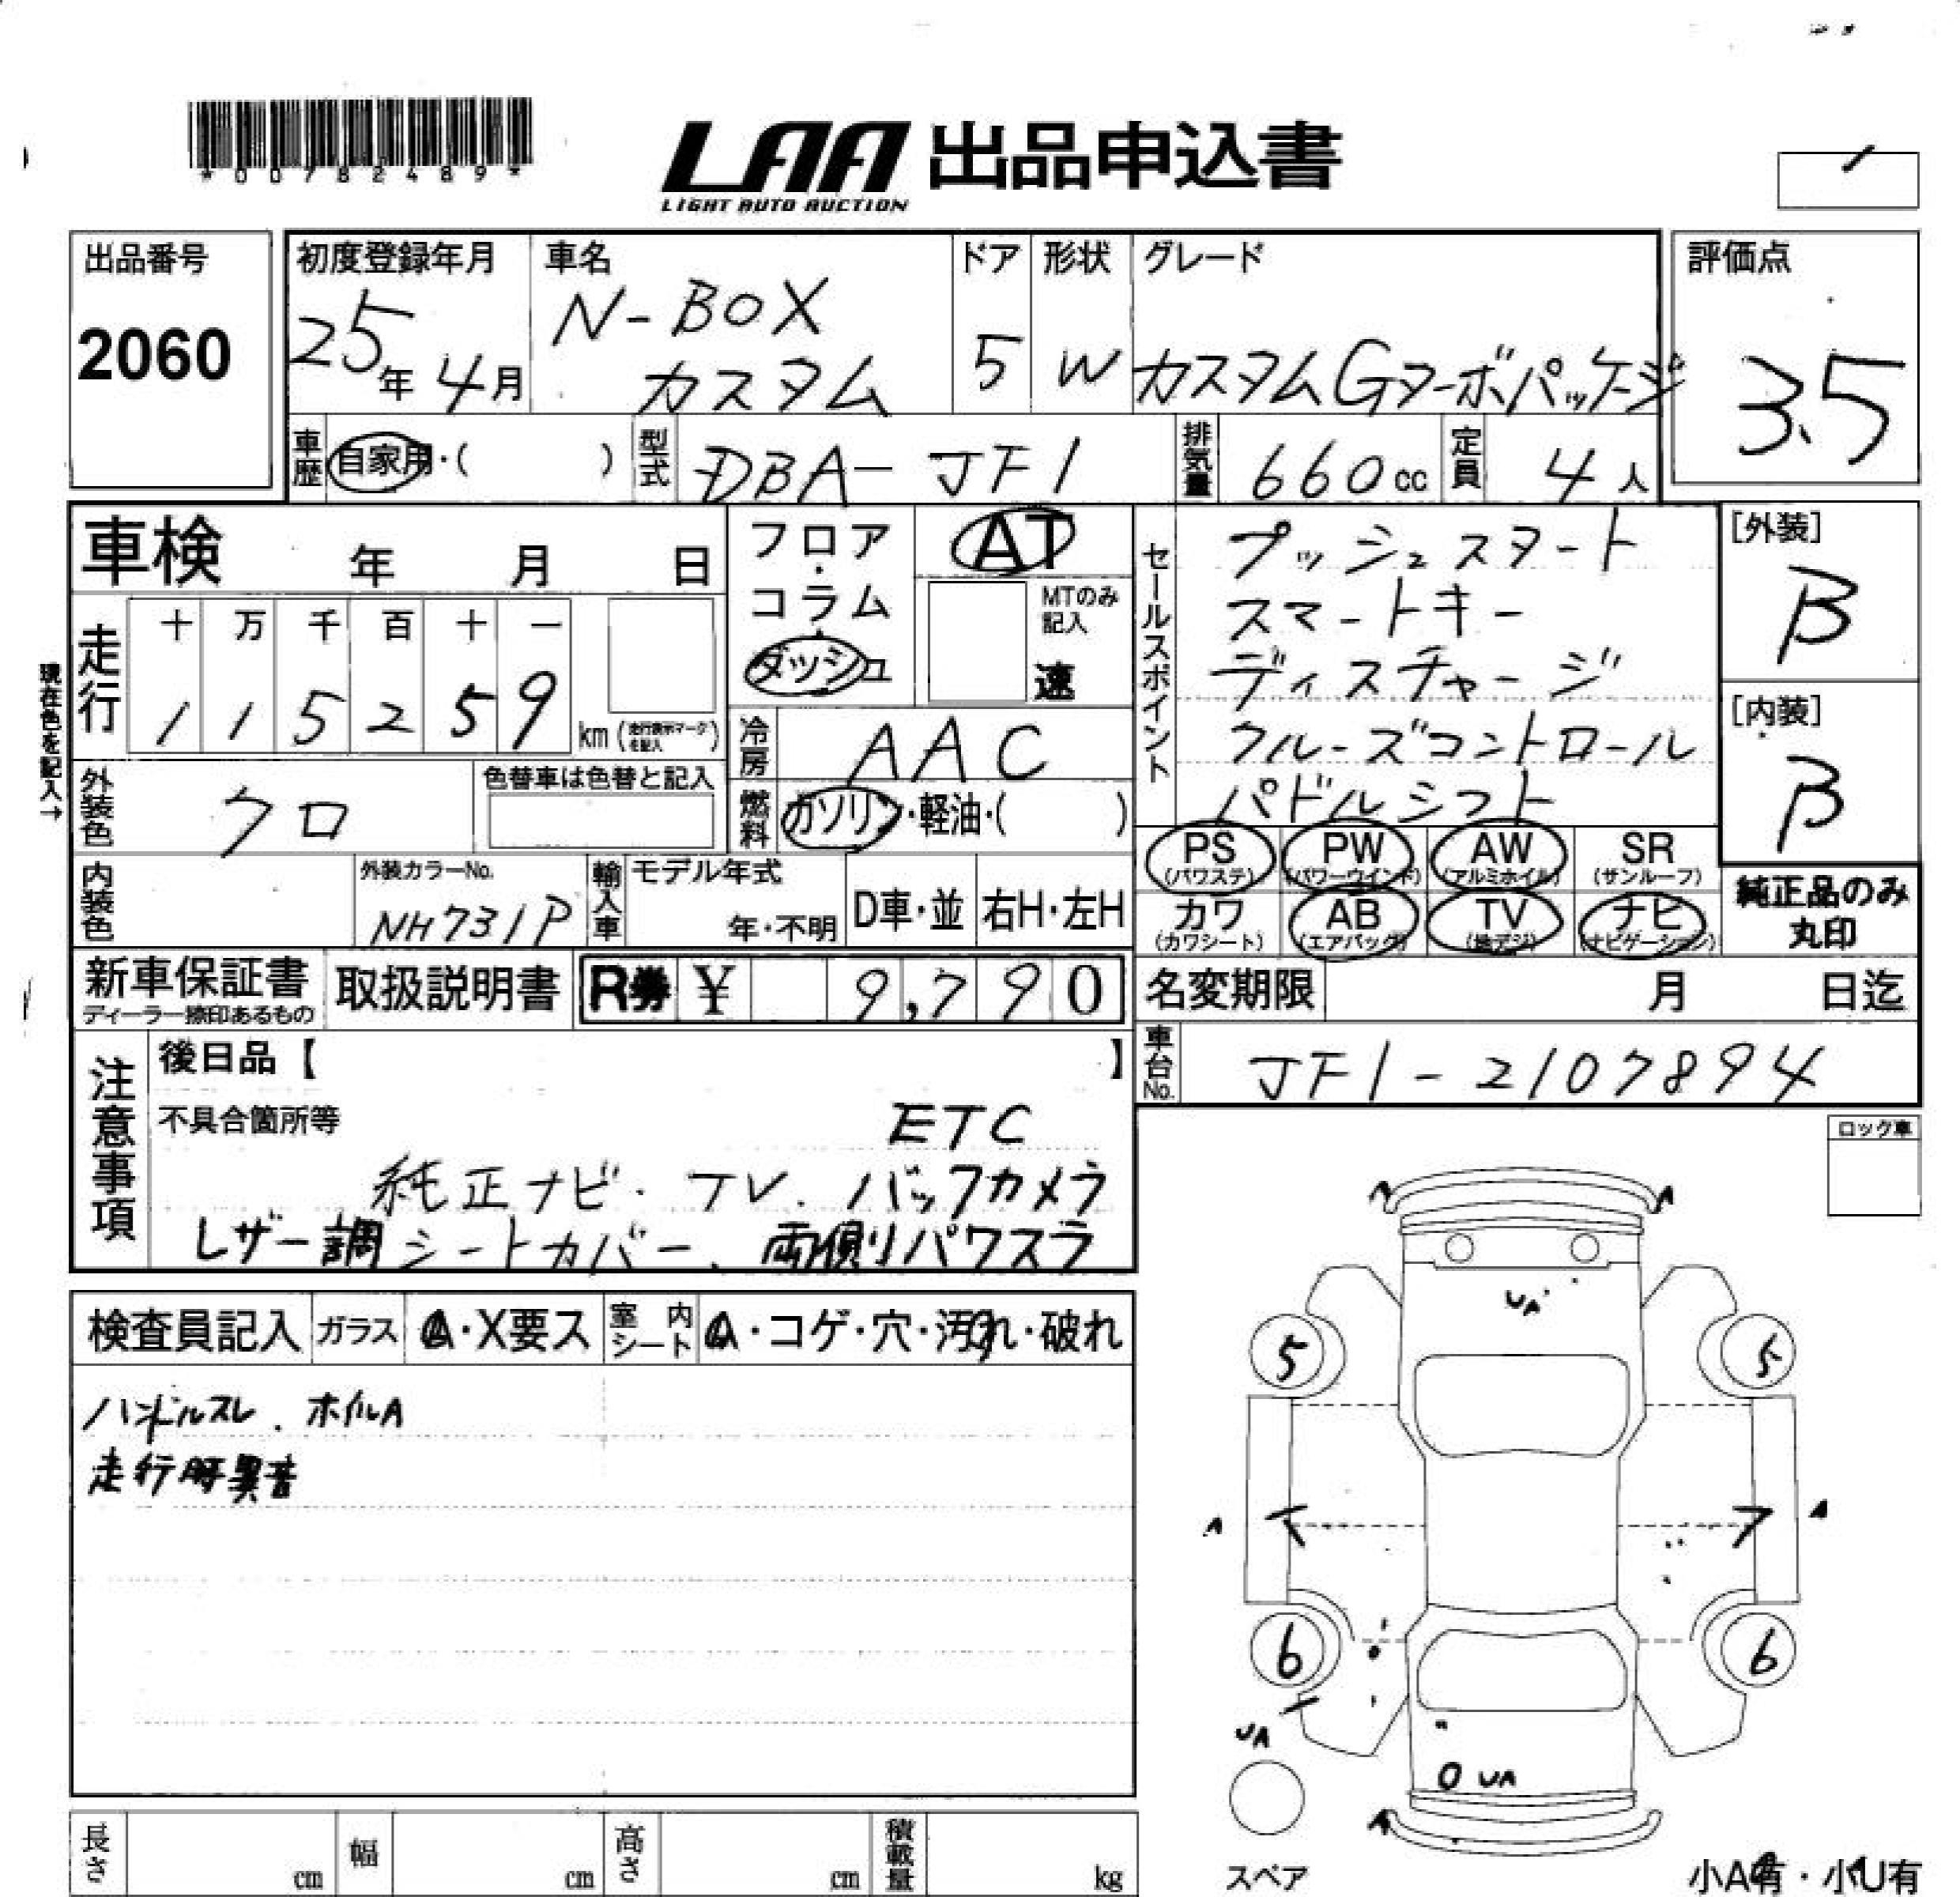 *00782489*
LAA 出品申込書
LIGHT AUTO AUCTION
出品番号
2060
初度登録年月
25年 4月
車名
N-BOX
カスタム
ドア
5
形状
W
グレード
カスタムGターボパッケージ
評価点
3.5
車歴
自家用・( )
型式
DBA-JF1
排気量
660cc
定員
4人
車検 年 月 日
フロア・コラム・ダッシュ
AT
MTのみ記入
速
セールスポイント
プッシュスタート
スマートキー
ディスチャージ
クルーズコントロール
パドルシフト
[外装]
B
[内装]
B
現在色を記入→
走行
十 万 千 百 十 一
1 1 5 2 5 9 km (走行表示マークを記入)
冷房
AAC
外装色
クロ
色替車は色替と記入
燃料
ガソリン・軽油・( )
PS (パワステ)
PW (パワーウインド)
AW (アルミホイル)
SR (サンルーフ)
カワ (カワシート)
AB (エアバッグ)
TV (地デジ)
ナビ (ナビゲーション)
純正品のみ
丸印
内装色
外装カラーNo.
NH731P
輸入車
モデル年式
年・不明
D車・並
右H・左H
新車保証書
ディーラー捺印あるもの
取扱説明書
R券 ¥ 9,790
名変期限 月 日迄
車台No.
JF1-2107894
注意事項
後日品【 】
不具合箇所等
ETC
純正ナビ・TV.バックカメラ
レザー調シートカバー、両側パワスラ
ロック車
検査員記入
ガラス
A・X要ス
室内シート
A・コゲ・穴・汚れ・破れ
ハンドルスレ.ホイルA
走行時異音
A A
UA
5 5
A A
6 6
UA
O UA
A
スペア
長さ cm
幅 cm
高さ cm
積載量 kg
小A有・小U有